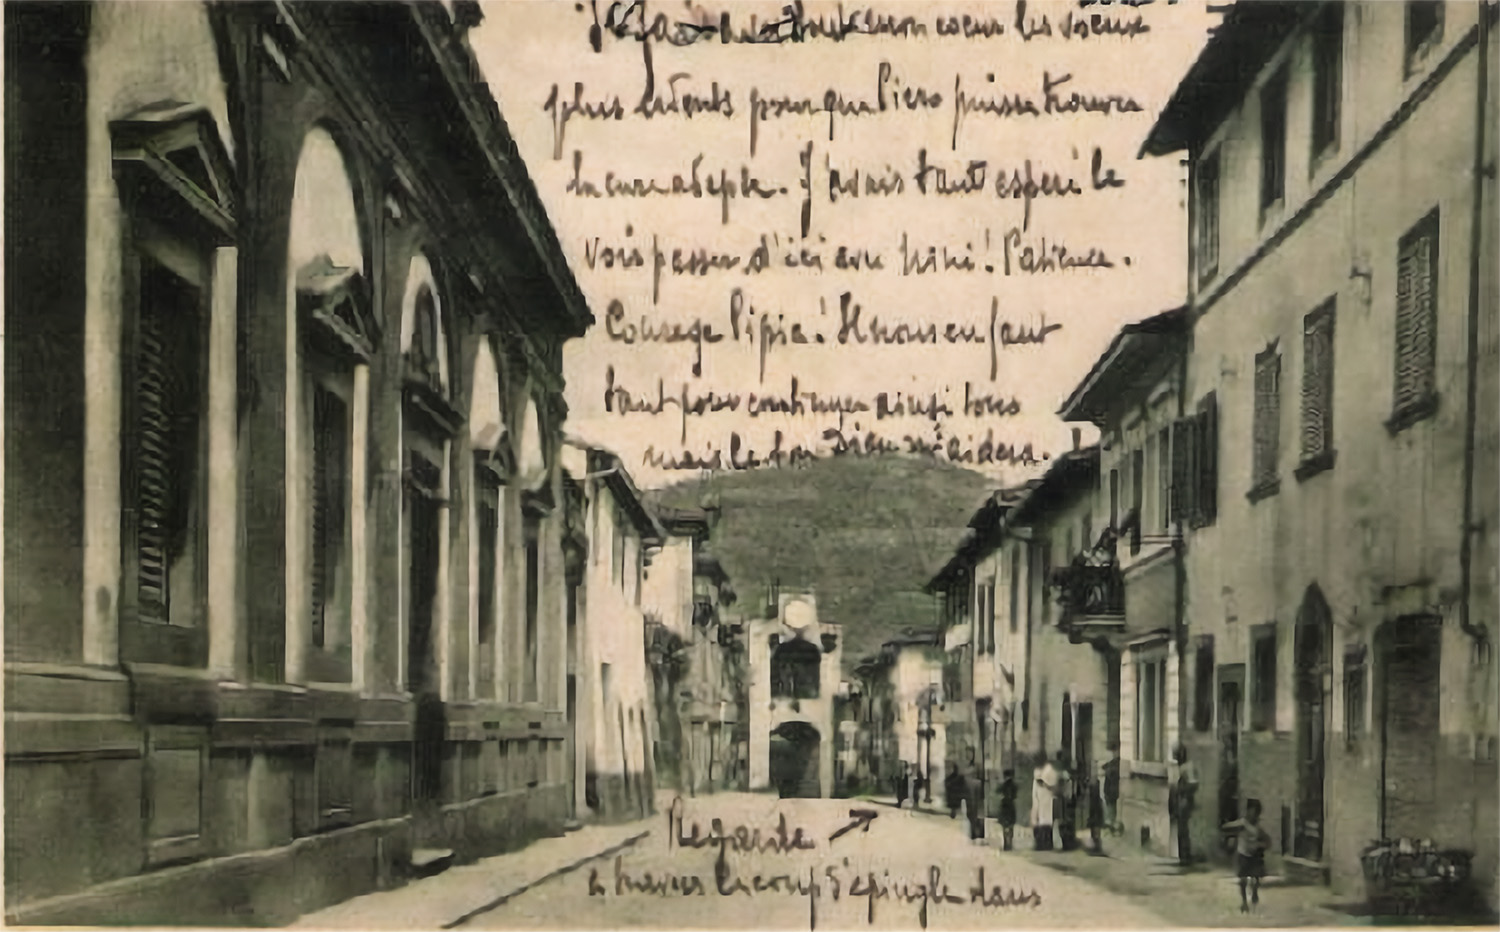 tout mon coeur les voeux
plus ardents pour que Piero puisse trouver
la cure adepte. J'avais tant espéré le
voir passer d'ici avec Nini! Patience.
Courage Pipia! Il nous en faut
tant pour continuer ainsi tous
mais le bon Dieu m'aidera.
Regarde
a travers le coup d'epingle dans